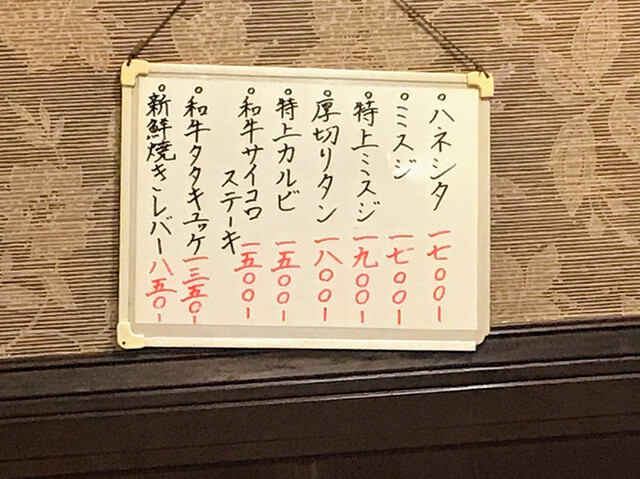 °ハネシタ 一七〇〇ー
°ミスジ 一七〇〇ー
°特上ミスジ 一九〇〇ー
°厚切りタン 一八〇〇ー
°特上カルビ 一五〇〇ー
°和牛サイコロ
ステーキ 一五〇〇ー
°和牛タタキユッケ 一三五〇ー
°新鮮焼きレバー 八五〇ー